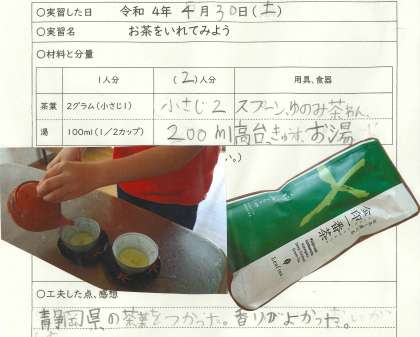 ○実習した日 令和4年4月30日(土)
○実習名 お茶をいれてみよう
○材料と分量
1人分 (2)人分 用具、食器
茶葉 2グラム(小さじ1) 小さじ2 スプーン、ゆのみ茶わん、
湯 100ml(1/2カップ) 200ml 高台、きゅうす、お湯
い。)
金印一番茶
○工夫した点、感想
静岡県の茶葉をつかった。香りがよかった。